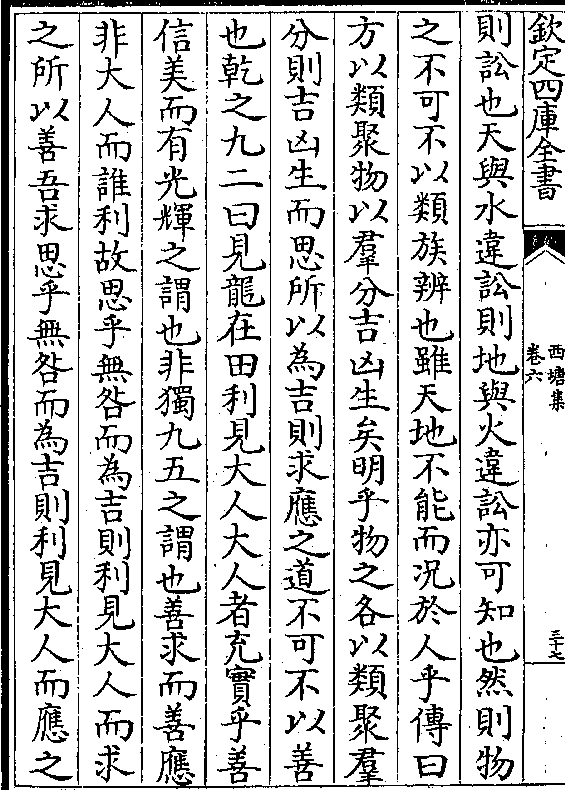 欽定四庫全書
西塘集
卷六
三十七
則訟也天與水違訟則地與火違訟亦可知也然則物
之不可不以類族辨也雖天地不能而况於人乎傳曰
方以類聚物以羣分吉凶生矣明乎物之各以類聚羣
分則吉凶生而思所以為吉則求應之道不可不以善
也乾之九二曰見龍在田利見大人大人者充實乎善
信美而有光輝之謂也非獨九五之謂也善求而善應
非大人而誰利故思乎無咎而為吉則利見大人而求
之所以善吾求思乎無咎而為吉則利見大人而應之